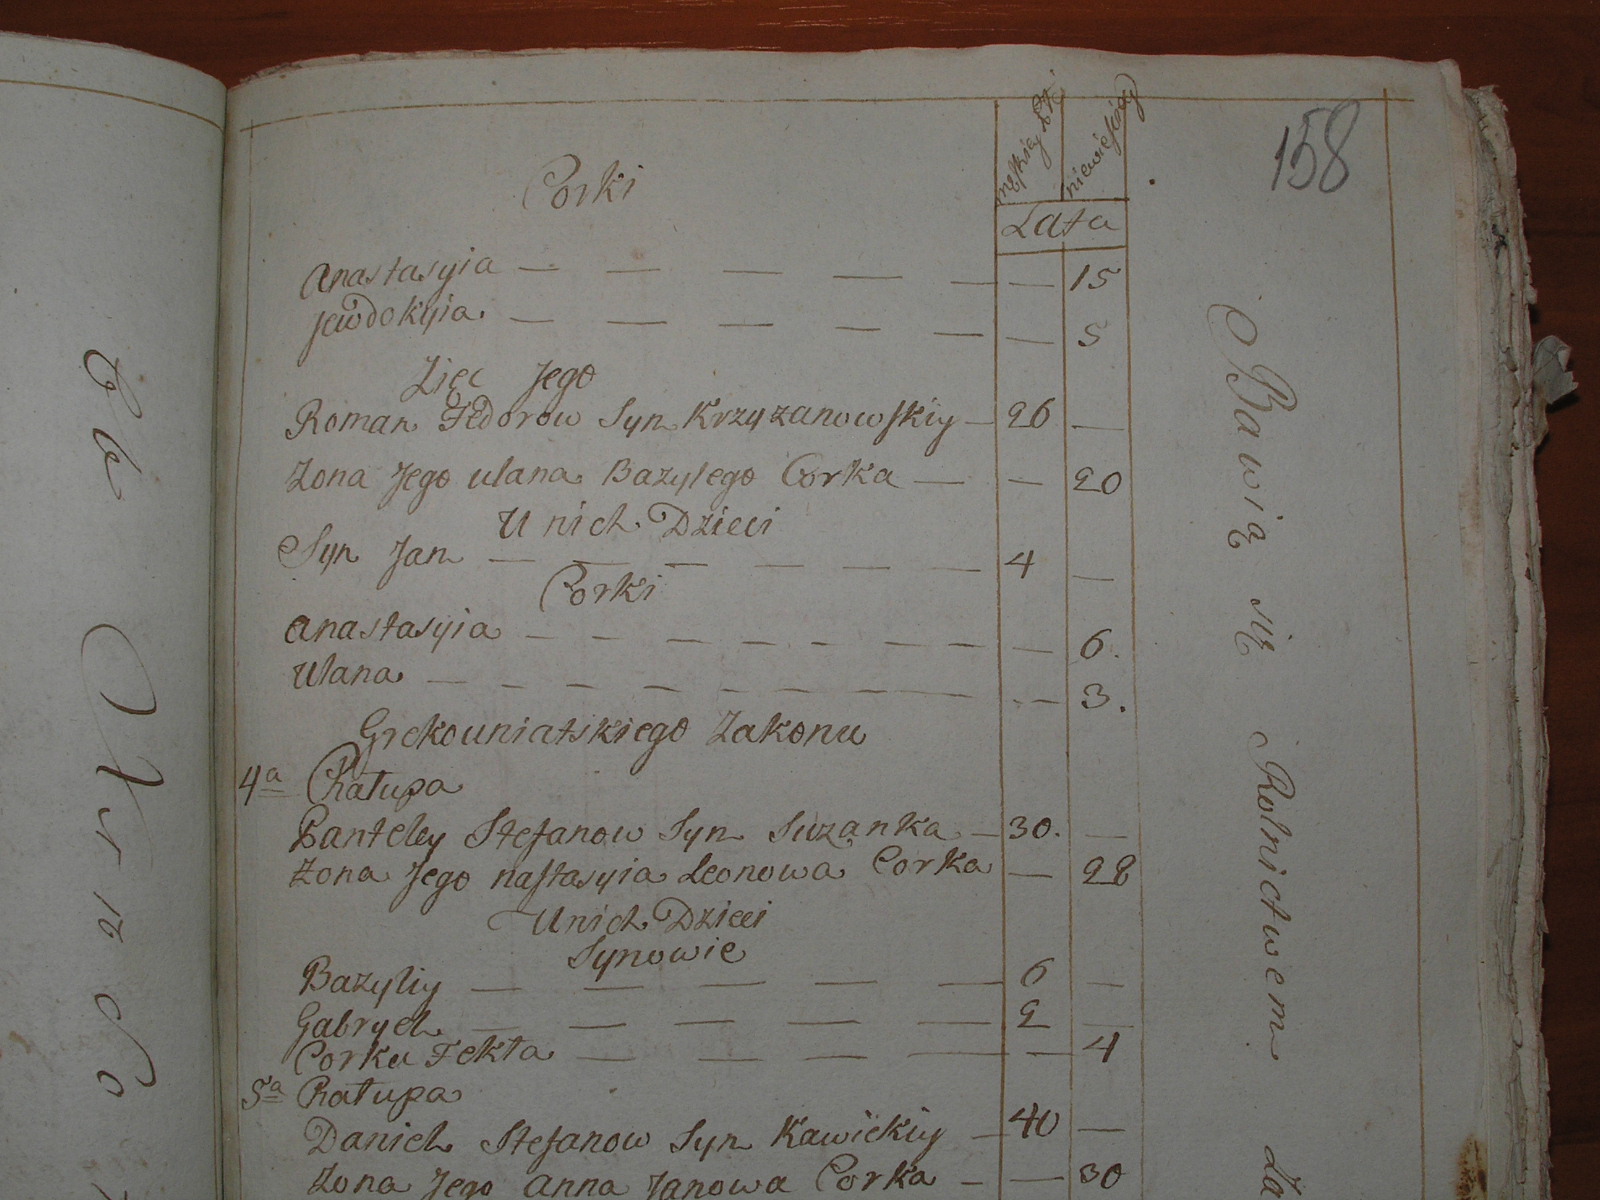 męskiey płci
niewieściey
158
Lata
Corki
Anastasyia — — — — — — 15
Jewdokyia — — — — — — 5
Zięc Jego
Roman Fedorow Syn Krzyżanowskiy — 26 —
Żona Jego Ulana Bazylego Corka — — 20
U nich Dzieci
Syn Jan — — — — — — 4 —
Corki
Anastasyia — — — — — — — — 6.
Ulana — — — — — — — — 3.
Grekouniatskiego Zakonu
4a Chałupa
Panteley Stefanow Syn Suzanka — 30. —
Żona Jego Nastasyia Leonowa Corka — 28
U nich Dzieci
Synowie
Bazyliy — — — — — 6 —
Gabryel — — — — — 2 —
Corka Fekła — — — — — 4
5a Chałupa
Daniel Stefanow Syn Kawickiy — 40 —
Żona Jego Anna Janowa Corka — — 30
Bawią się Rolnictwem